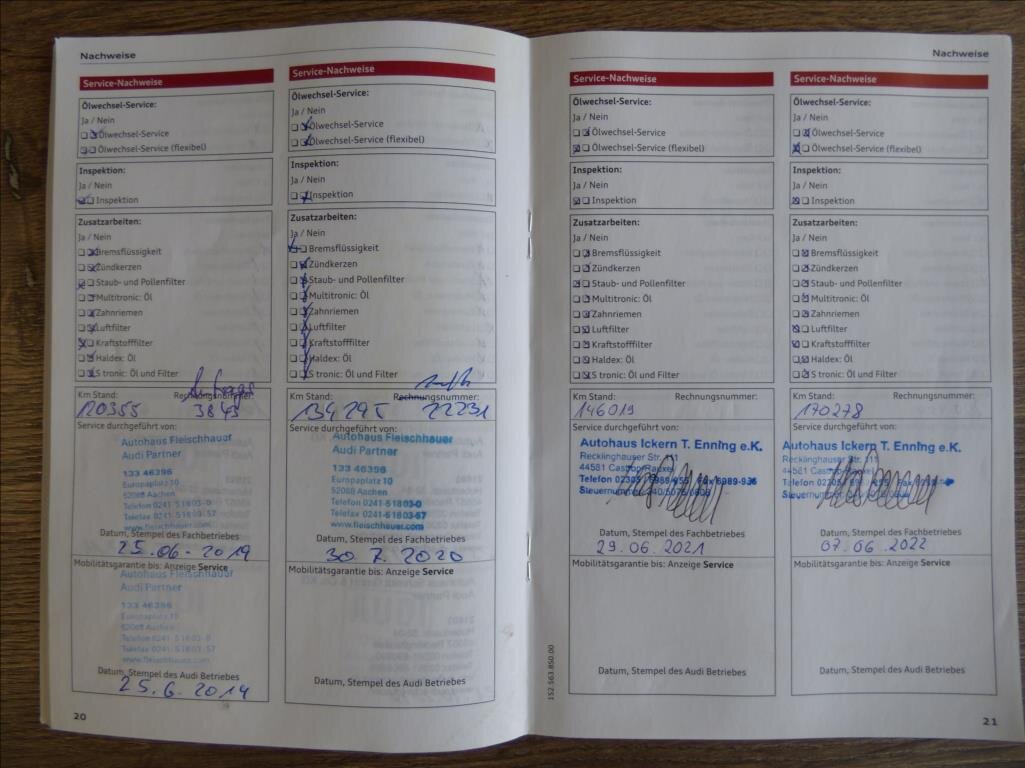 Nachweise
Service-Nachweise
Ölwechsel-Service:
Ja / Nein
Ölwechsel-Service
Ölwechsel-Service (flexibel)
Inspektion:
Ja / Nein
Inspektion
Zusatzarbeiten:
Ja / Nein
Bremsflüssigkeit
Zündkerzen
Staub- und Pollenfilter
Multitronic: Öl
Zahnriemen
Luftfilter
Kraftstofffilter
Haldex: Öl
S tronic: Öl und Filter
Km Stand: Rechnungsnummer:
120355 3843
Service durchgeführt von:
Autohaus Fleischhauer
Audi Partner
133 46396
Europaplatz 10
52068 Aachen
Telefon 0241-51803-0
Telefax 0241-51803-57
www.fleischhauer.com
Datum, Stempel des Fachbetriebes
25.06.2019
Mobilitätsgarantie bis: Anzeige Service
Autohaus Fleischhauer
Audi Partner
133 46396
Europaplatz 10
52068 Aachen
Telefon 0241-51803-0
Telefax 0241-51803-57
www.fleischhauer.com
Datum, Stempel des Audi Betriebes
25.6.2019
20
Service-Nachweise
Ölwechsel-Service:
Ja / Nein
Ölwechsel-Service
Ölwechsel-Service (flexibel)
Inspektion:
Ja / Nein
Inspektion
Zusatzarbeiten:
Ja / Nein
Bremsflüssigkeit
Zündkerzen
Staub- und Pollenfilter
Multitronic: Öl
Zahnriemen
Luftfilter
Kraftstofffilter
Haldex: Öl
S tronic: Öl und Filter
Km Stand: Rechnungsnummer:
22231
Service durchgeführt von:
Autohaus Fleischhauer
Audi Partner
133 46396
Europaplatz 10
52068 Aachen
Telefon 0241-51803-0
Telefax 0241-51803-57
www.fleischhauer.com
Datum, Stempel des Fachbetriebes
30.7.2020
Mobilitätsgarantie bis: Anzeige Service
Datum, Stempel des Audi Betriebes
Nachweise
Service-Nachweise
Ölwechsel-Service:
Ja / Nein
Ölwechsel-Service
Ölwechsel-Service (flexibel)
Inspektion:
Ja / Nein
Inspektion
Zusatzarbeiten:
Ja / Nein
Bremsflüssigkeit
Zündkerzen
Staub- und Pollenfilter
Multitronic: Öl
Zahnriemen
Luftfilter
Kraftstofffilter
Haldex: Öl
S tronic: Öl und Filter
Km Stand: Rechnungsnummer:
146019
Service durchgeführt von:
Autohaus Ickern T. Enning e.K.
Recklinghauser Str. 111
44581 Castrop-Rauxel
Telefon
Steuernummer
Datum, Stempel des Fachbetriebes
29.06.2021
Mobilitätsgarantie bis: Anzeige Service
Datum, Stempel des Audi Betriebes
152.563.850.00
Service-Nachweise
Ölwechsel-Service:
Ja / Nein
Ölwechsel-Service
Ölwechsel-Service (flexibel)
Inspektion:
Ja / Nein
Inspektion
Zusatzarbeiten:
Ja / Nein
Bremsflüssigkeit
Zündkerzen
Staub- und Pollenfilter
Multitronic: Öl
Zahnriemen
Luftfilter
Kraftstofffilter
Haldex: Öl
S tronic: Öl und Filter
Km Stand: Rechnungsnummer:
170278
Service durchgeführt von:
Autohaus Ickern T. Enning e.K.
Recklinghauser Str. 111
44581
Telefon
Steuernummer
Datum, Stempel des Fachbetriebes
07.06.2022
Mobilitätsgarantie bis: Anzeige Service
Datum, Stempel des Audi Betriebes
21